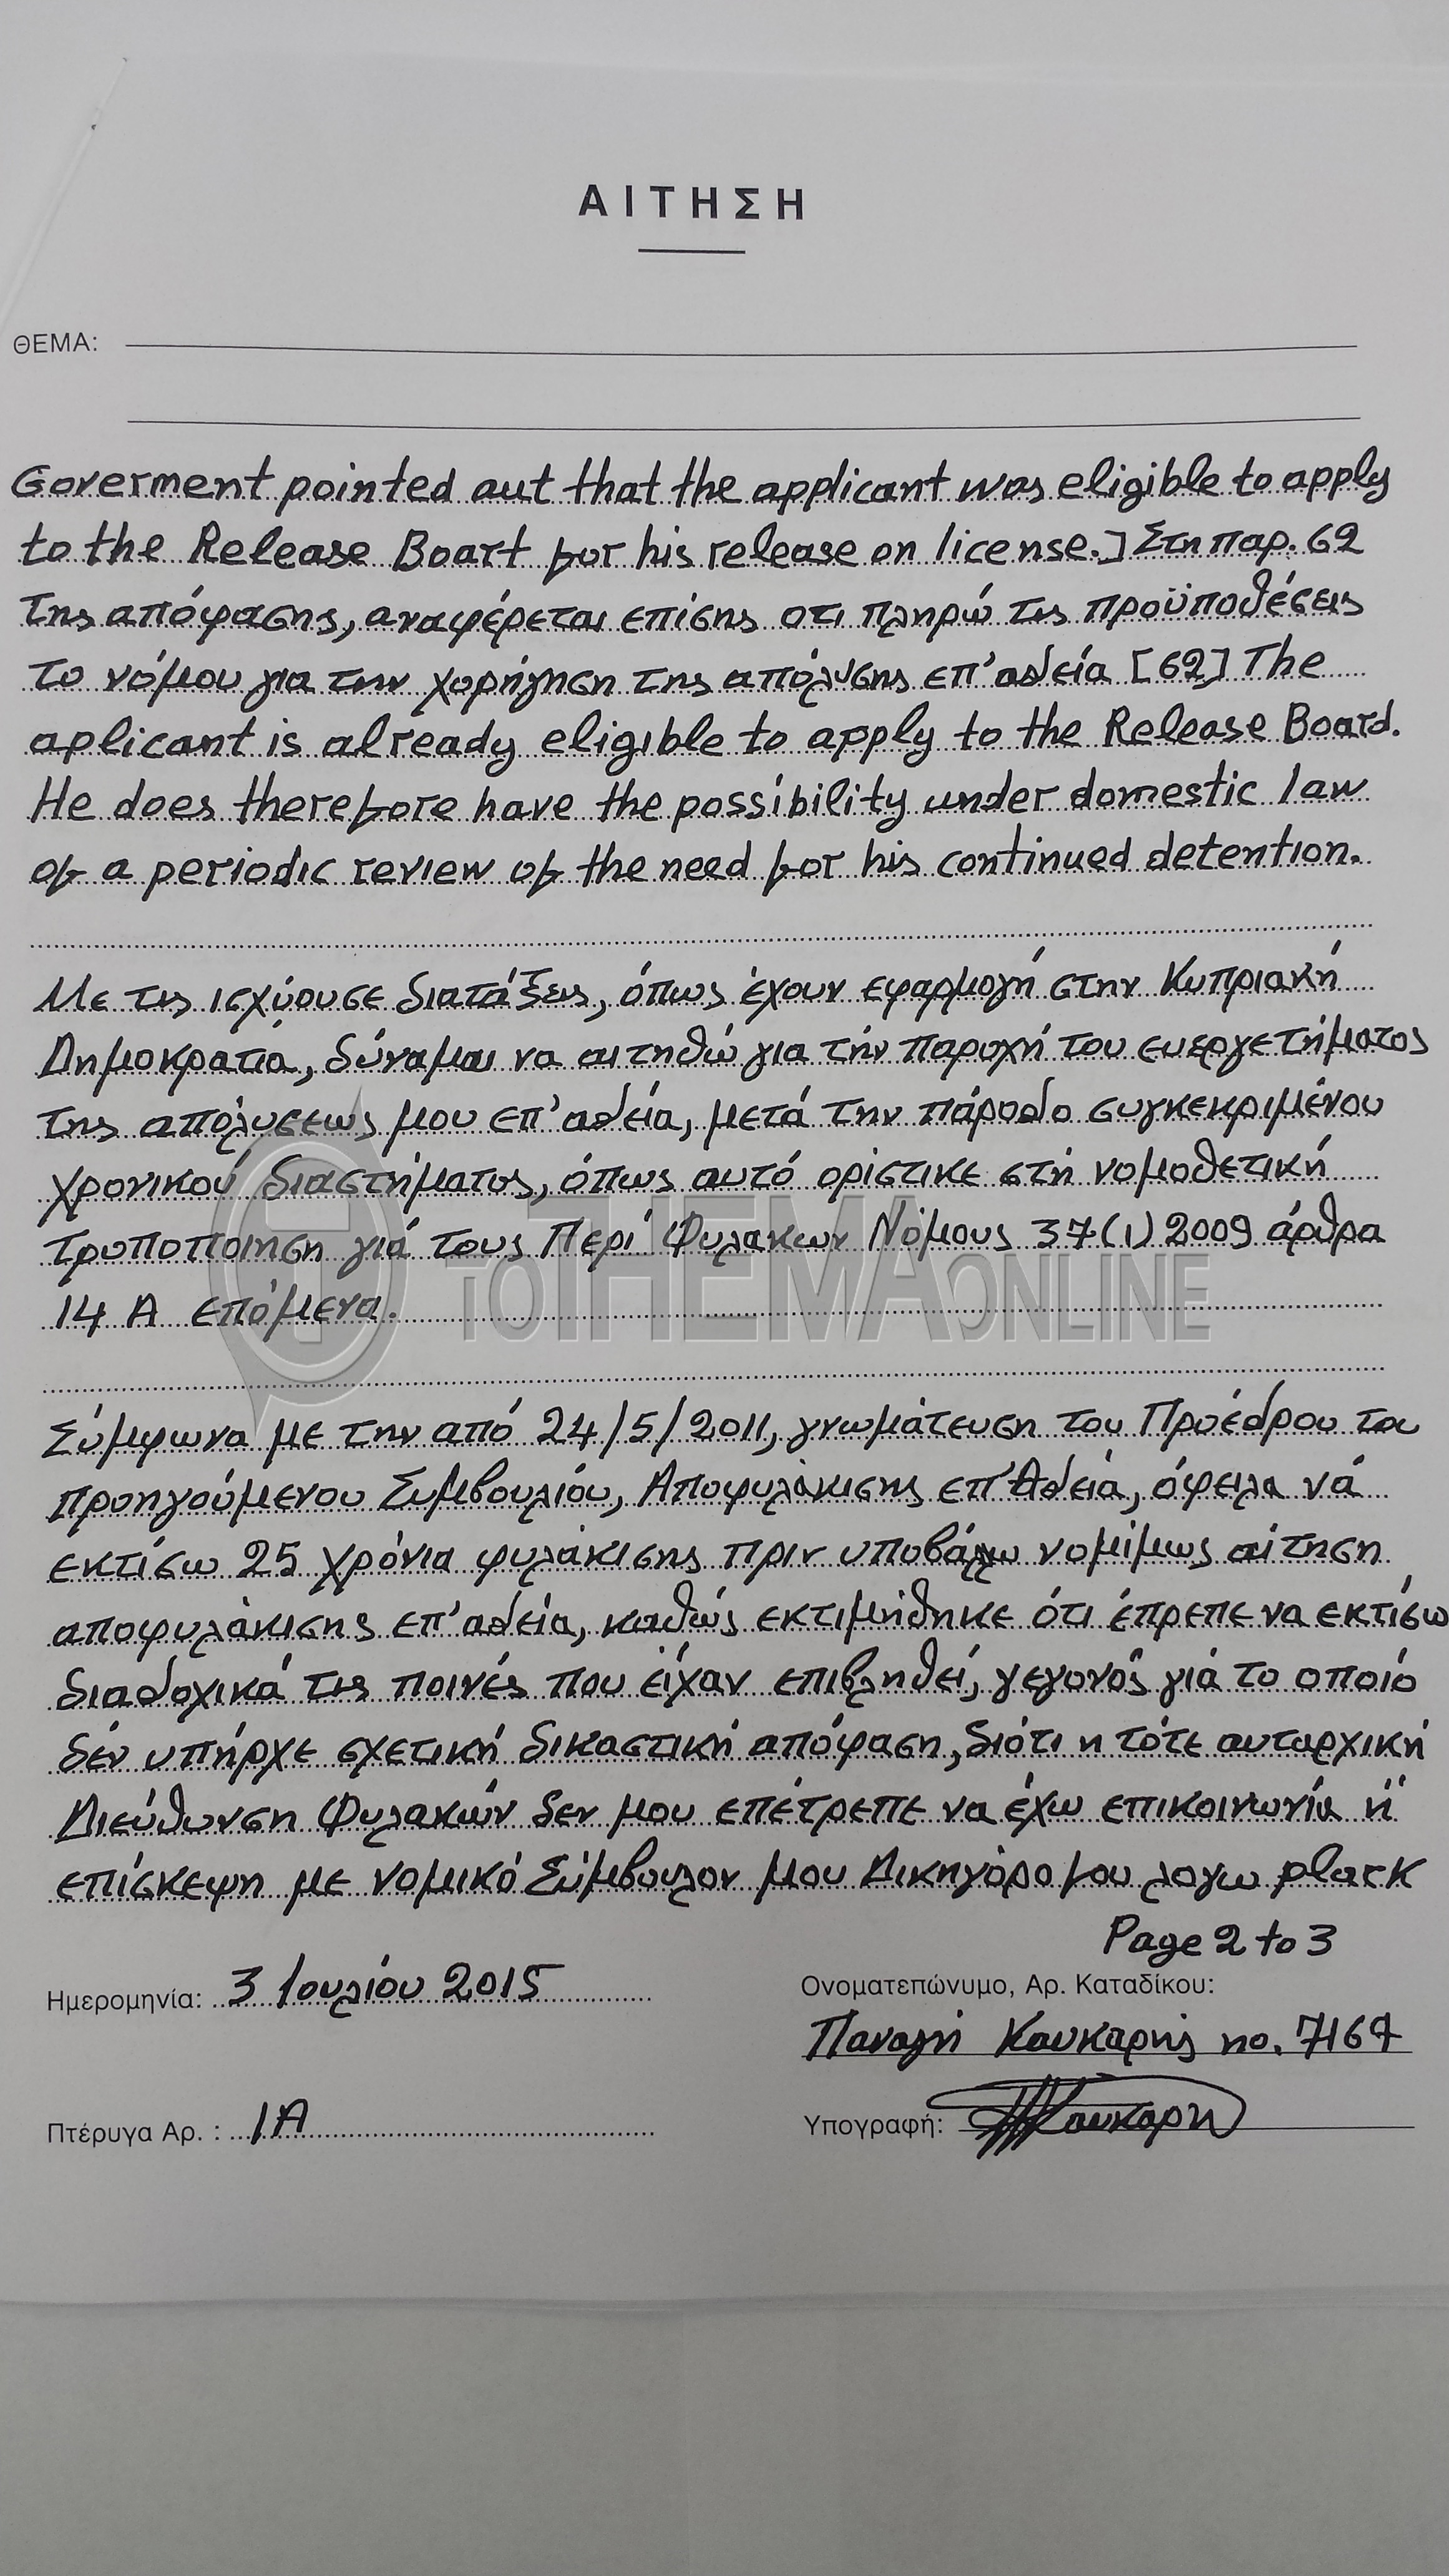 ΑΙΤΗΣΗ
ΘΕΜΑ:
Goverment pointed out that the applicant was eligible to apply
to the Release Boart for his release on license.] Στη παρ. 62
της απόφασης, αναφέρεται επίσης οτι πληρώ τις προϋποθέσεις
το νόμου για την χορήγηση της απόλυσης επ' αδεία [62] The
aplicant is already eligible to apply to the Release Board.
He does therefore have the possibility under domestic law
of a periodic review of the need for his continued detention.
Με τις ισχύουσε διατάξεις, όπως έχουν εφαρμογή στην Κυπριακή
Δημοκρατία, δύναμαι να αιτηθώ για τήν παροχή του ευεργετήματος
της απολύσεως μου επ' αδεία, μετά την πάροδο συγκεκριμένου
χρονικού διαστήματος, όπως αυτό ορίστικε στή νομοθετική
τροποποιηση γιά τους Περί Φυλακων Νόμους 37(1) 2009 άρθρα
14 Α επόμενα.
TO THEMA ONLINE
Σύμφωνα με την από 24/5/2011, γνωμάτευση του Προέδρου του
προηγούμενου Συμβουλίου, Αποφυλάκισης επ' Αδεία, όφειλα νά
εκτίσω 25 χρόνια φυλάκισης πριν υποβάλλω νομίμως αίτηση
αποφυλάκισης επ' αδεία, καθώς εκτιμήθηκε ότι έπρεπε να εκτίσω
διαδοχικά τις ποινές που είχαν επιβληθεί, γεγονός γιά το οποίο
δέν υπήρχε σχετική δικαστική απόφαση, διότι η τότε αυταρχική
Διεύθυνση Φυλακών δεν μου επέτρεπε να έχω επικοινωνία ή
επίσκεψη με νομικό Σύμβουλον μου Δικηγόρο μου λογω plack
Page 2 to 3
Ημερομηνία: 3 Ιουλίου 2015
Ονοματεπώνυμο, Αρ. Καταδίκου:
Παναγή Καυκαρής no. 7167
Πτέρυγα Αρ. : 1Α
Υπογραφή: Καυκαρη